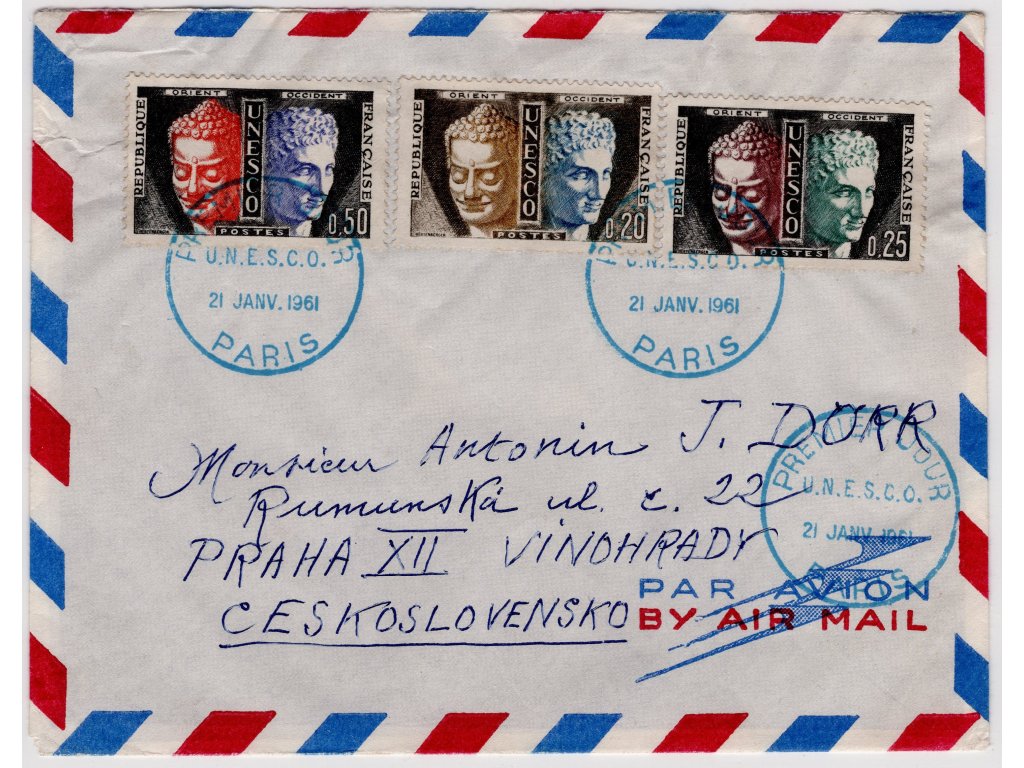 ORIENT OCCIDENT
RÉPUBLIQUE UNESCO FRANÇAISE
0,50
POSTES
ORIENT OCCIDENT
REPUBLIQUE UNESCO FRANÇAISE
0,20
POSTES
ORIENT OCCIDENT
REPUBLIQUE UNESCO FRANÇAISE
0,25
POSTES
U.N.E.S.C.O.
21 JANV. 1961
PARIS
U.N.E.S.C.O.
21 JANV. 1961
PARIS
Monsieur Antonin J. DORR
Rumunská ul. č. 22
PRAHA XII VINOHRADY
CESKOSLOVENSKO
PREMIER JOUR
U.N.E.S.C.O.
21 JANV. 1961
PARIS
PAR AVION
BY AIR MAIL